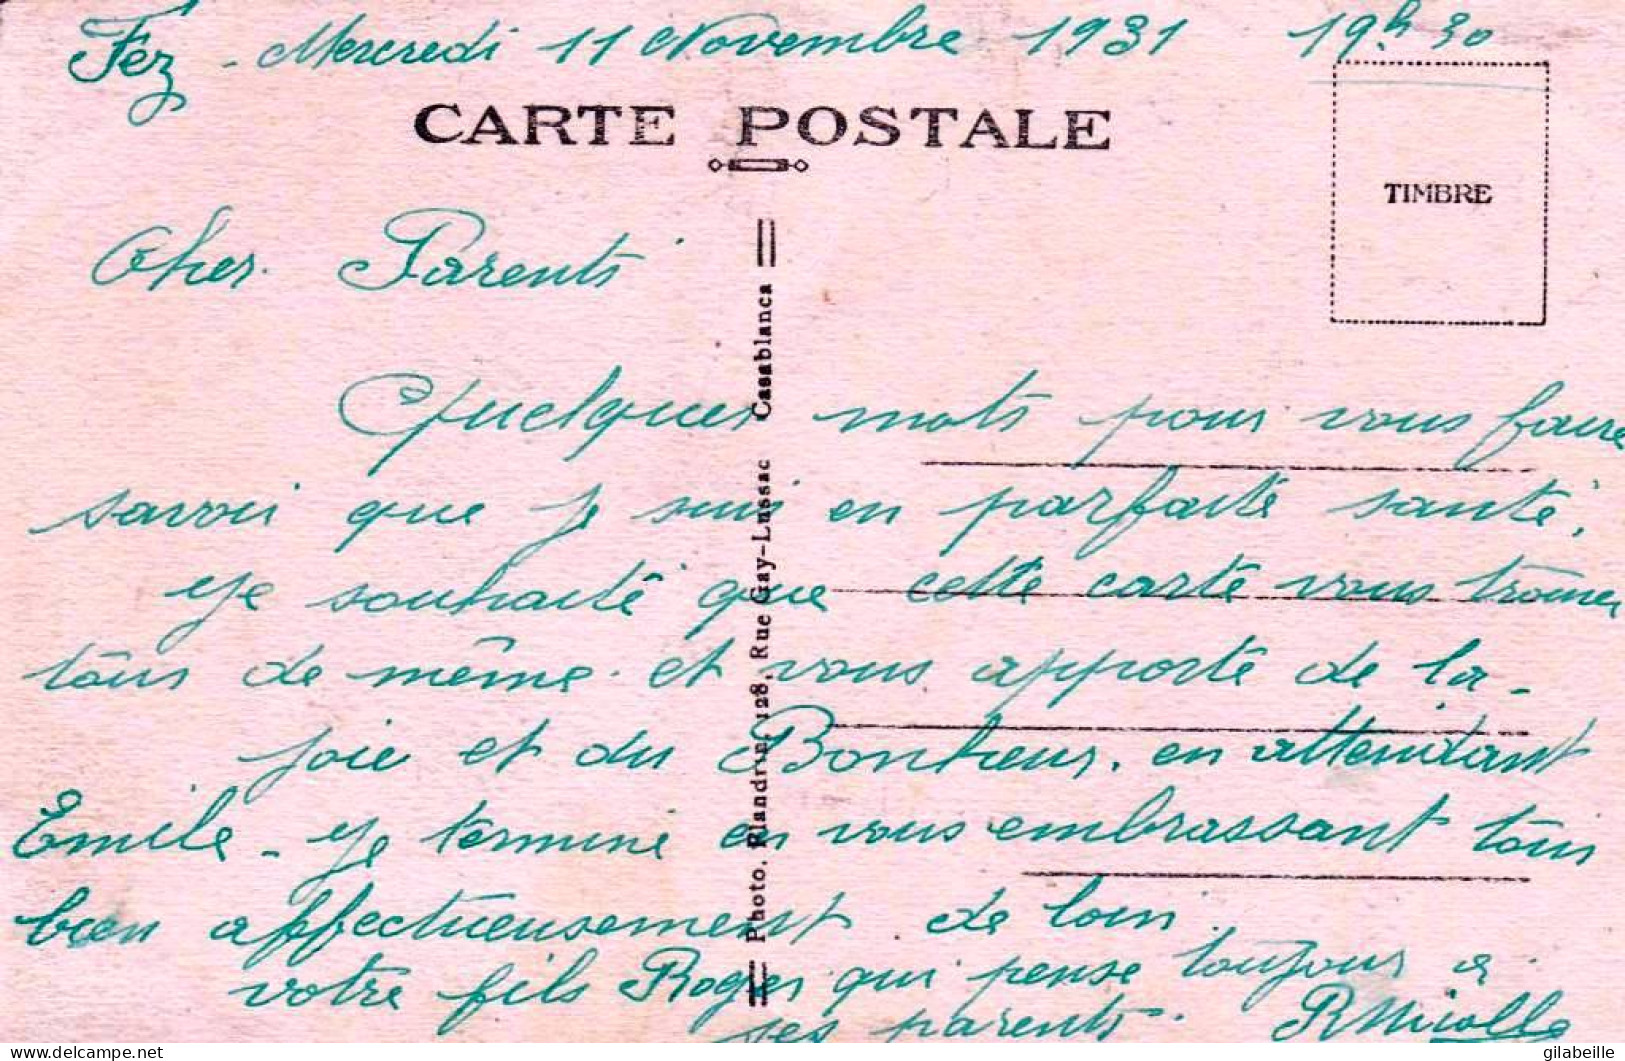 Fez - Mercredi 11 Novembre 1931 19h30
CARTE POSTALE
TIMBRE
Cher Parents
Quelques mots pour vous faire
savoir que je suis en parfaite santé,
je souhaite que cette carte vous trouve
tous de même et vous apporte de la
joie et du Bonheur. en attendant
Emile - je termine en vous embrassant tous
bien affectueusement de loin
votre fils Roger qui pense toujours à
ses parents.
Photo. Flandrin, 128, Rue Gay-Lussac Casablanca
delcampe.net
gilabeille